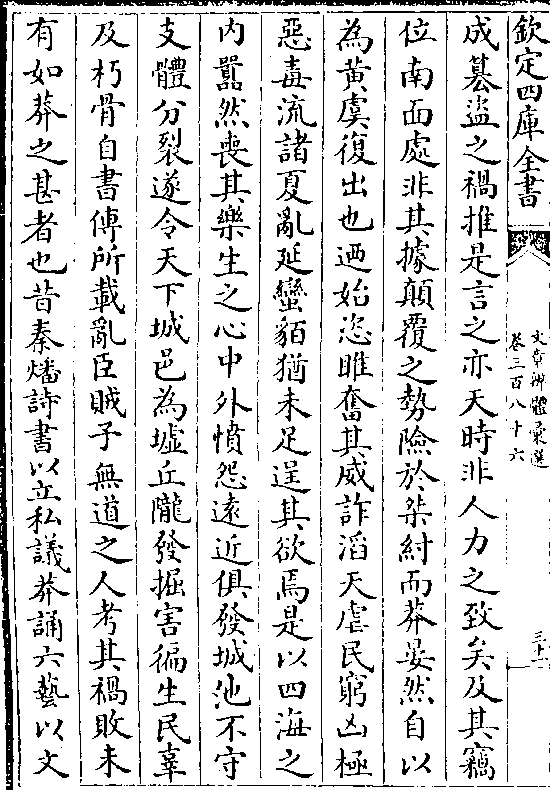 欽定四庫全書
文章辨體彙選
卷三百八十六
成簒盜之禍推是言之亦天時非人力之致矣及其竊
位南面處非其據顛覆之勢險於桀紂而莽晏然自以
為黃虞復出也迺始恣睢奮其威詐滔天虐民窮凶極
惡毒流諸夏亂延蠻貊猶未足逞其欲焉是以四海之
内嚻然喪其樂生之心中外憤怨遠近俱發城池不守
支體分裂遂令天下城邑為墟丘隴發掘害徧生民辜
及朽骨自書傳所載亂臣賊子無道之人考其禍敗未
有如莽之甚者也昔秦燔詩書以立私議莽誦六藝以文